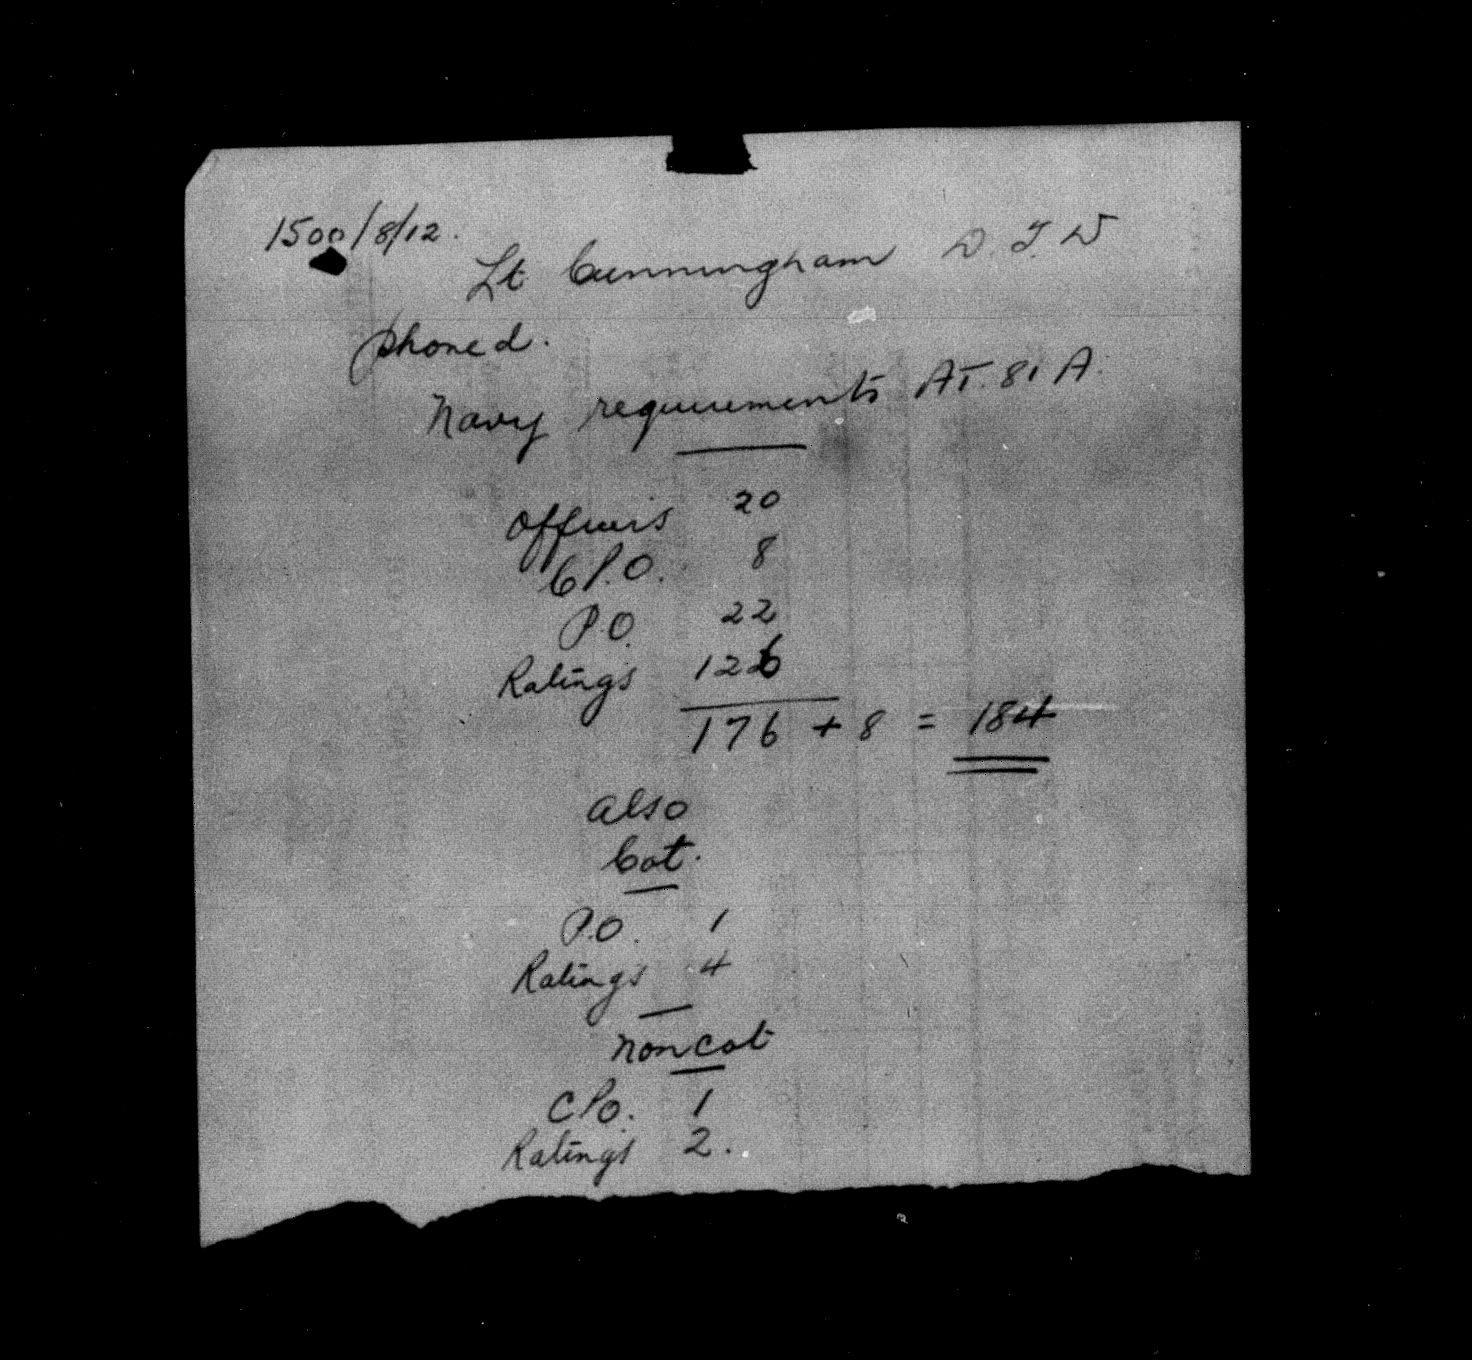 1500/8/12.
Lt Cunningham D.T.D
phoned.
Navy requirements AT. 81 A.
Officers 20
C P.O. 8
P.O. 22
Ratings 126
176 + 8 = 184
also
Cat.
P.O. 1
Ratings 4
non cat
C P.O. 1
Ratings 2.